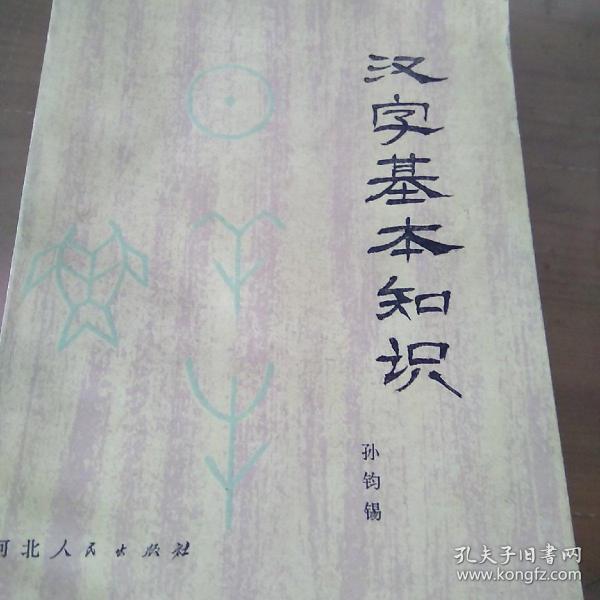 汉字基本知识
孙钧锡
河北人民出版社
孔夫子旧书网
www.kongfz.com